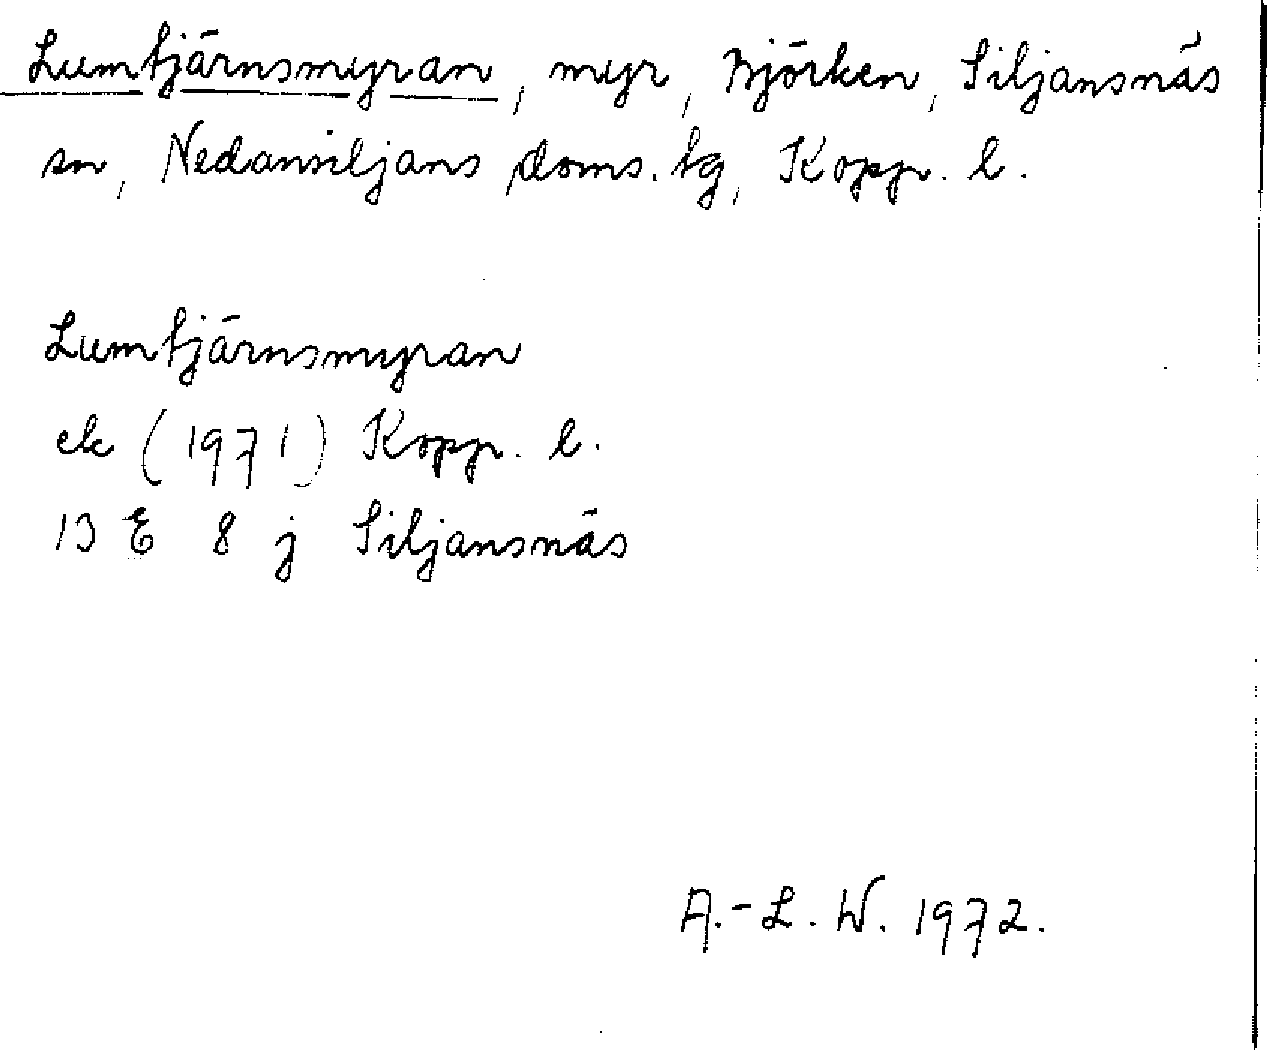 Lumtjärnsmyran, myr, Björken, Siljansnäs
sn, Nedansiljans doms. tg, Kopp. l.
Lumtjärnsmyran
ek (1971) Kopp. l.
13 E 8 j Siljansnäs
A.-L. W. 1972.